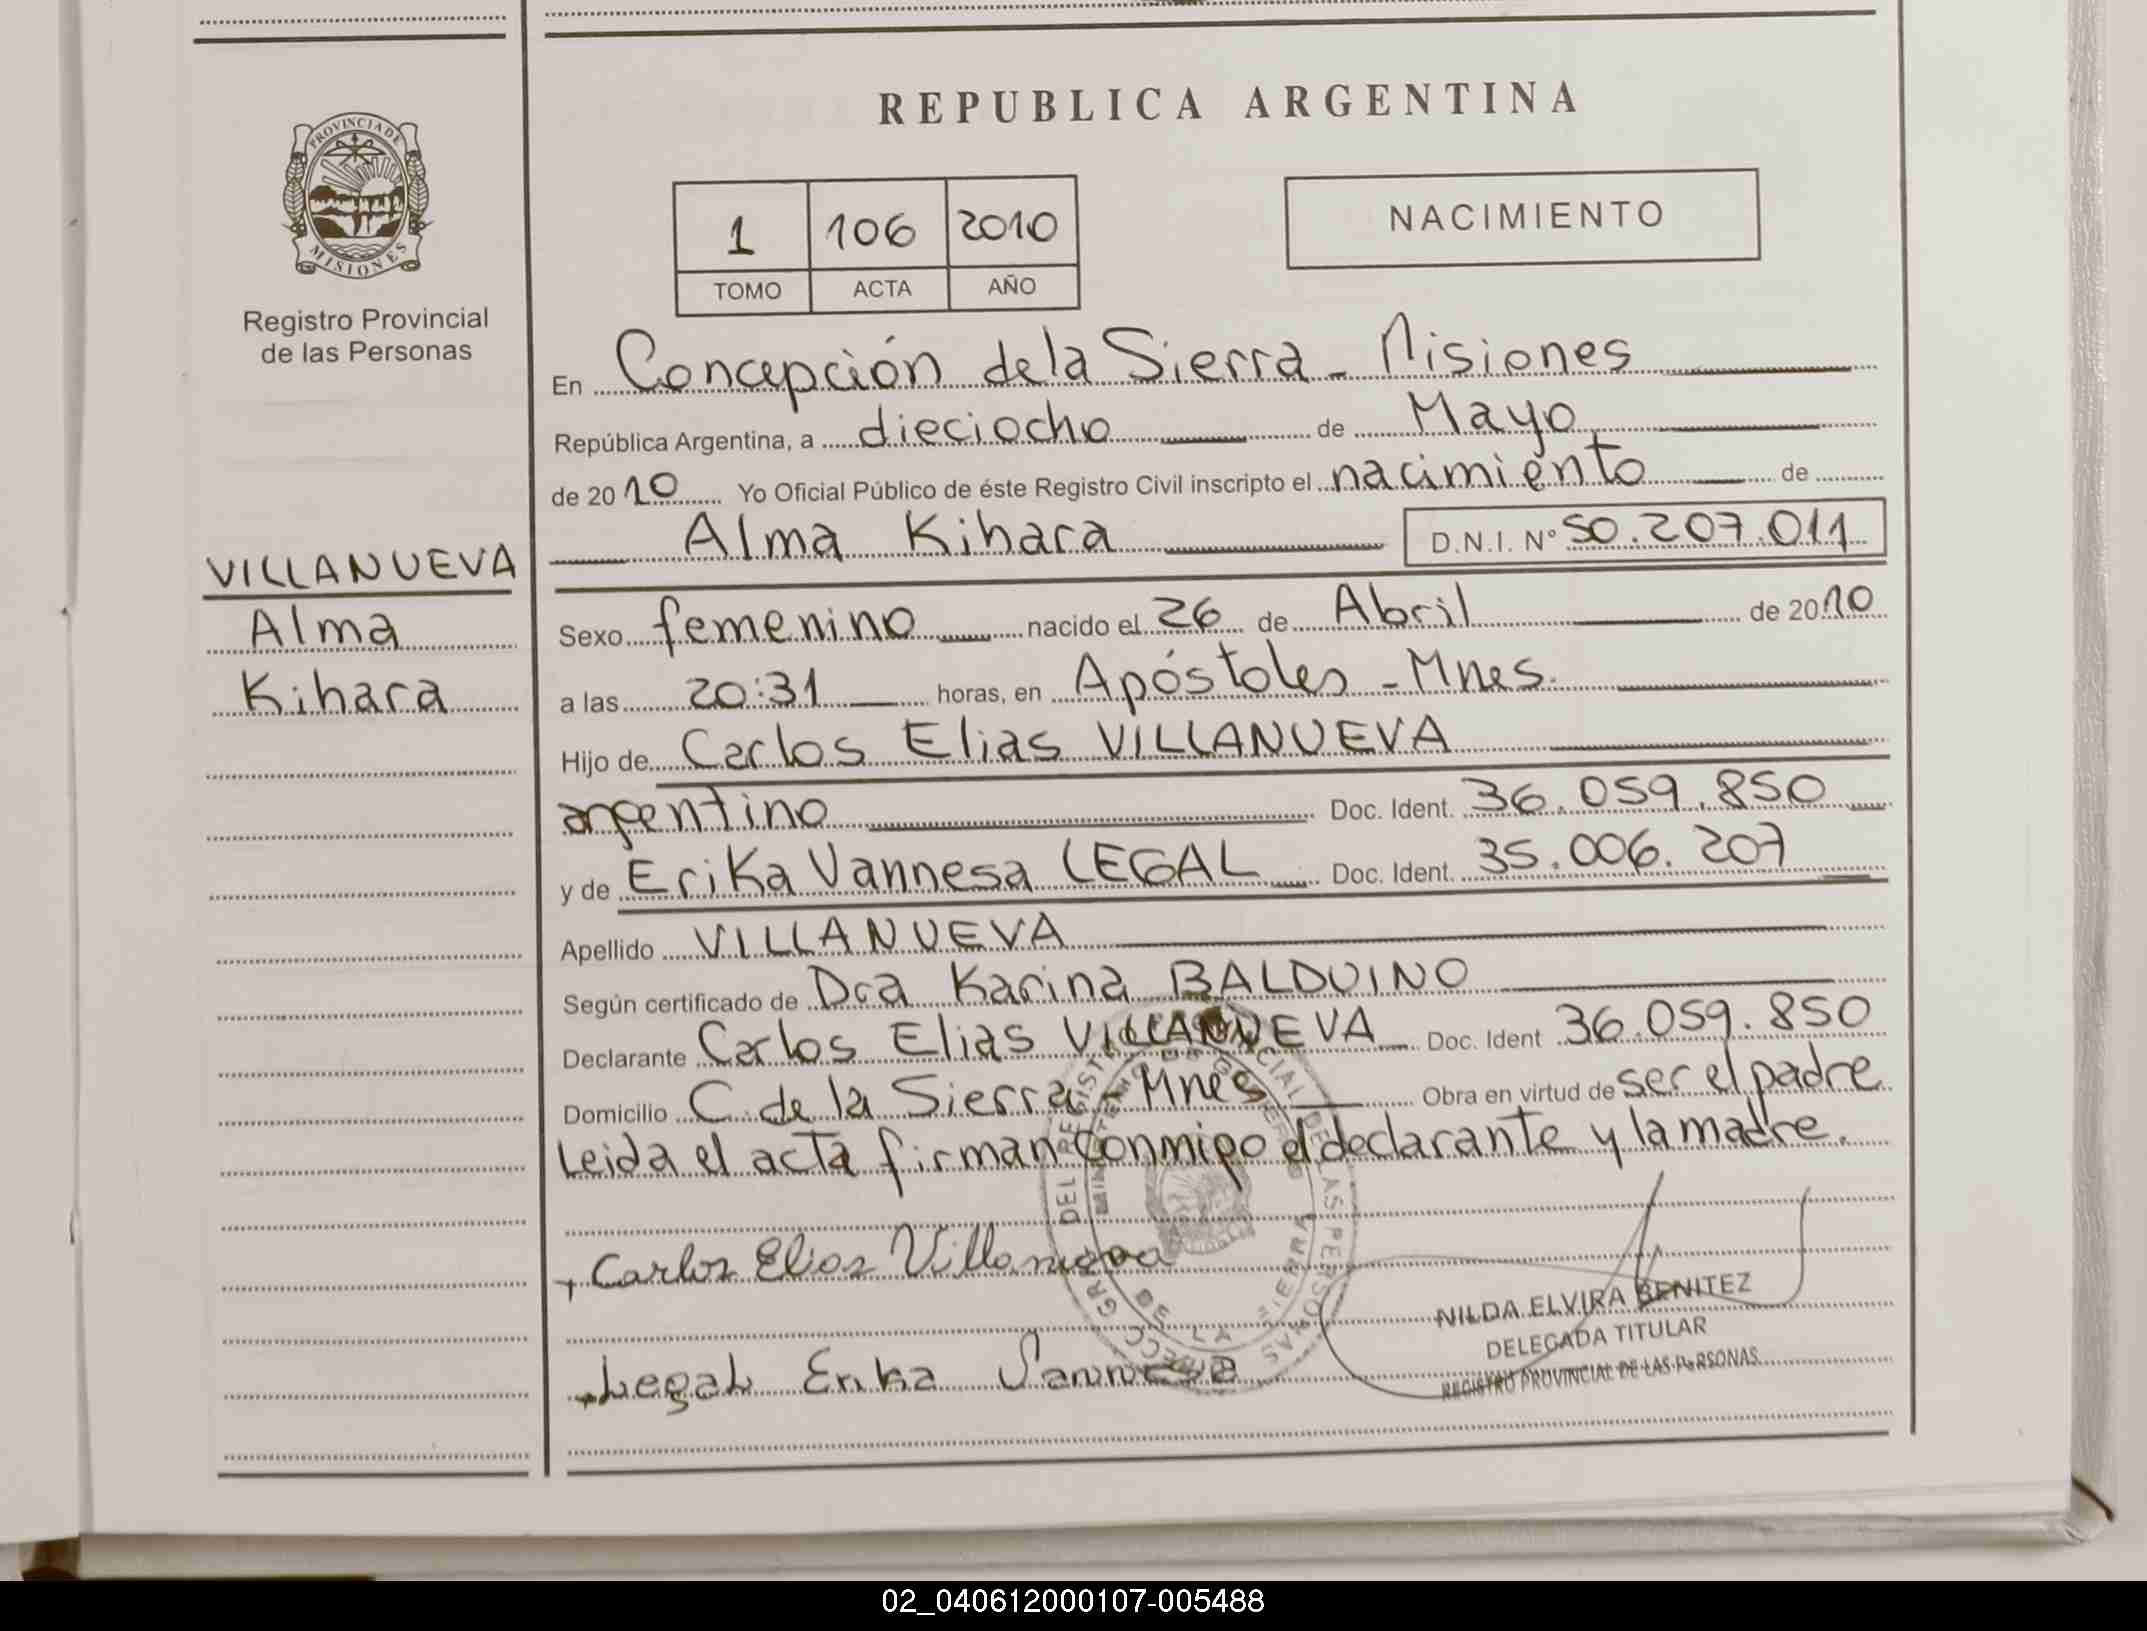 REPUBLICA ARGENTINA
PROVINCIA DE
MISIONES
Registro Provincial
de las Personas
1 106 2010
TOMO ACTA AÑO
NACIMIENTO
En Concepción de la Sierra - Misiones
República Argentina, a dieciocho de Mayo
de 2010 Yo Oficial Público de éste Registro Civil inscripto el nacimiento de
Alma Kihara D.N.I. N° 50.207.011
VILLANUEVA
Alma
Kihara
Sexo femenino nacido el 26 de Abril de 2010
a las 20:31 horas, en Apóstoles - Mnes.
Hijo de Carlos Elias VILLANUEVA
argentino Doc. Ident. 36.059.850
y de Erika Vannesa LEGAL Doc. Ident. 35.006.207
Apellido VILLANUEVA
Según certificado de Dra Karina BALDUINO
Declarante Carlos Elias VILLANUEVA Doc. Ident 36.059.850
Domicilio C. de la Sierra - Mnes Obra en virtud de ser el padre
Leida el acta firman conmigo el declarante y la madre.
Carlos Elias Villanueva
NILDA ELVIRA BENITEZ
DELEGADA TITULAR
REGISTRO PROVINCIAL DE LAS PERSONAS
Legal Erika Vannesa
02_040612000107-005488